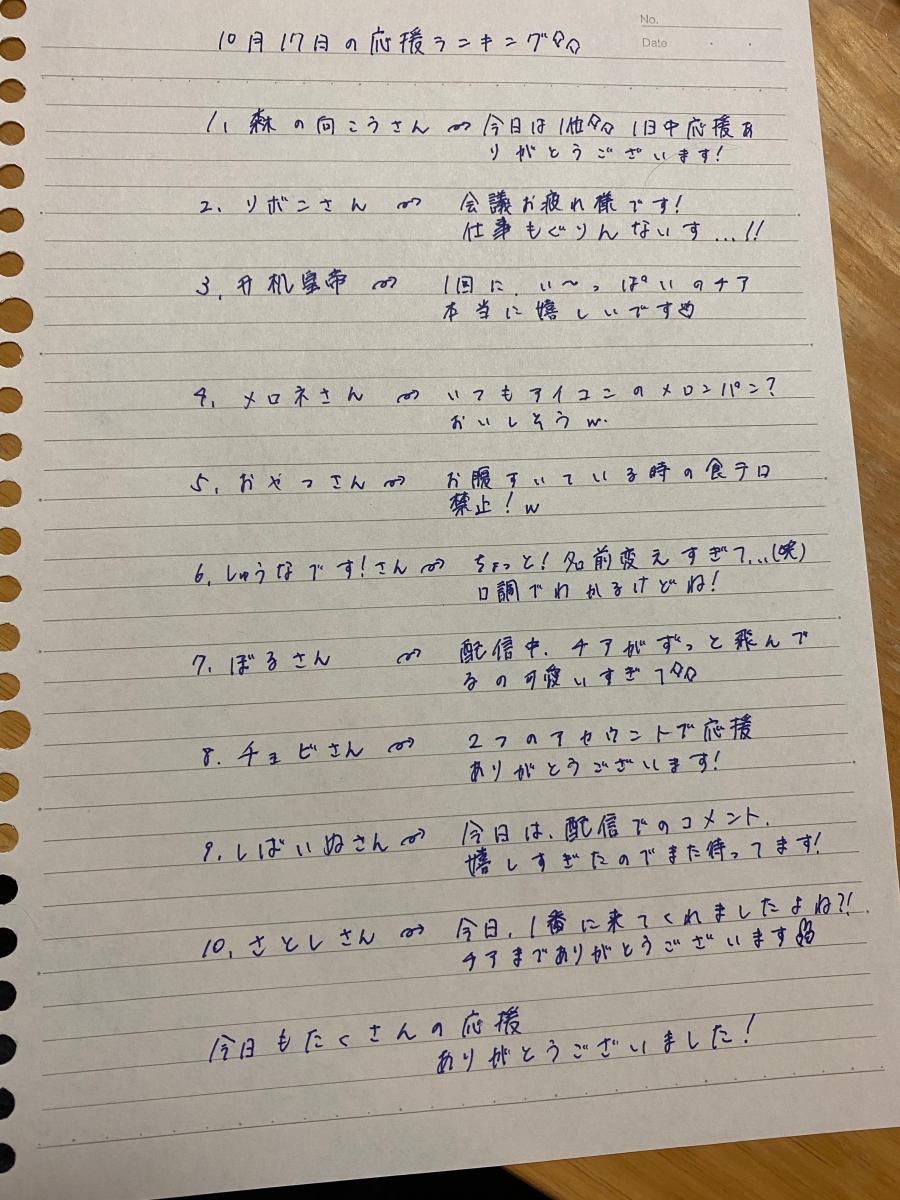 No.
Date
10月17日の応援ランキング♢♢
1, 森の向こうさん 今日は1位♢♢ 1日中応援あ
りがとうございます!
2, リボンさん 会議お疲れ様です!
仕事もぐりんないす...!!
3, 升机皇帝 1回に、い〜っぱいのチア
本当に嬉しいです
4, メロネさん いつもアイコンのメロンパン?
おいしそうw.
5, おやつさん お腹すいている時の食テロ
禁止!w
6, しゅうなです!さん ちょっと!名前変えすぎて...(笑)
口調でわかるけどね!
7, ぽるさん 配信中、チアがずっと飛んで
るの可愛いすぎて♢♢
8. チョビさん 2つのアカウントで応援
ありがとうございます!
9. しばいぬさん 今日は、配信でのコメント、
嬉しすぎたのでまた待ってます!
10, さとしさん 今日、1番に来てくれましたよね?!
チアまでありがとうございます
今日もたくさんの応援
ありがとうございました!